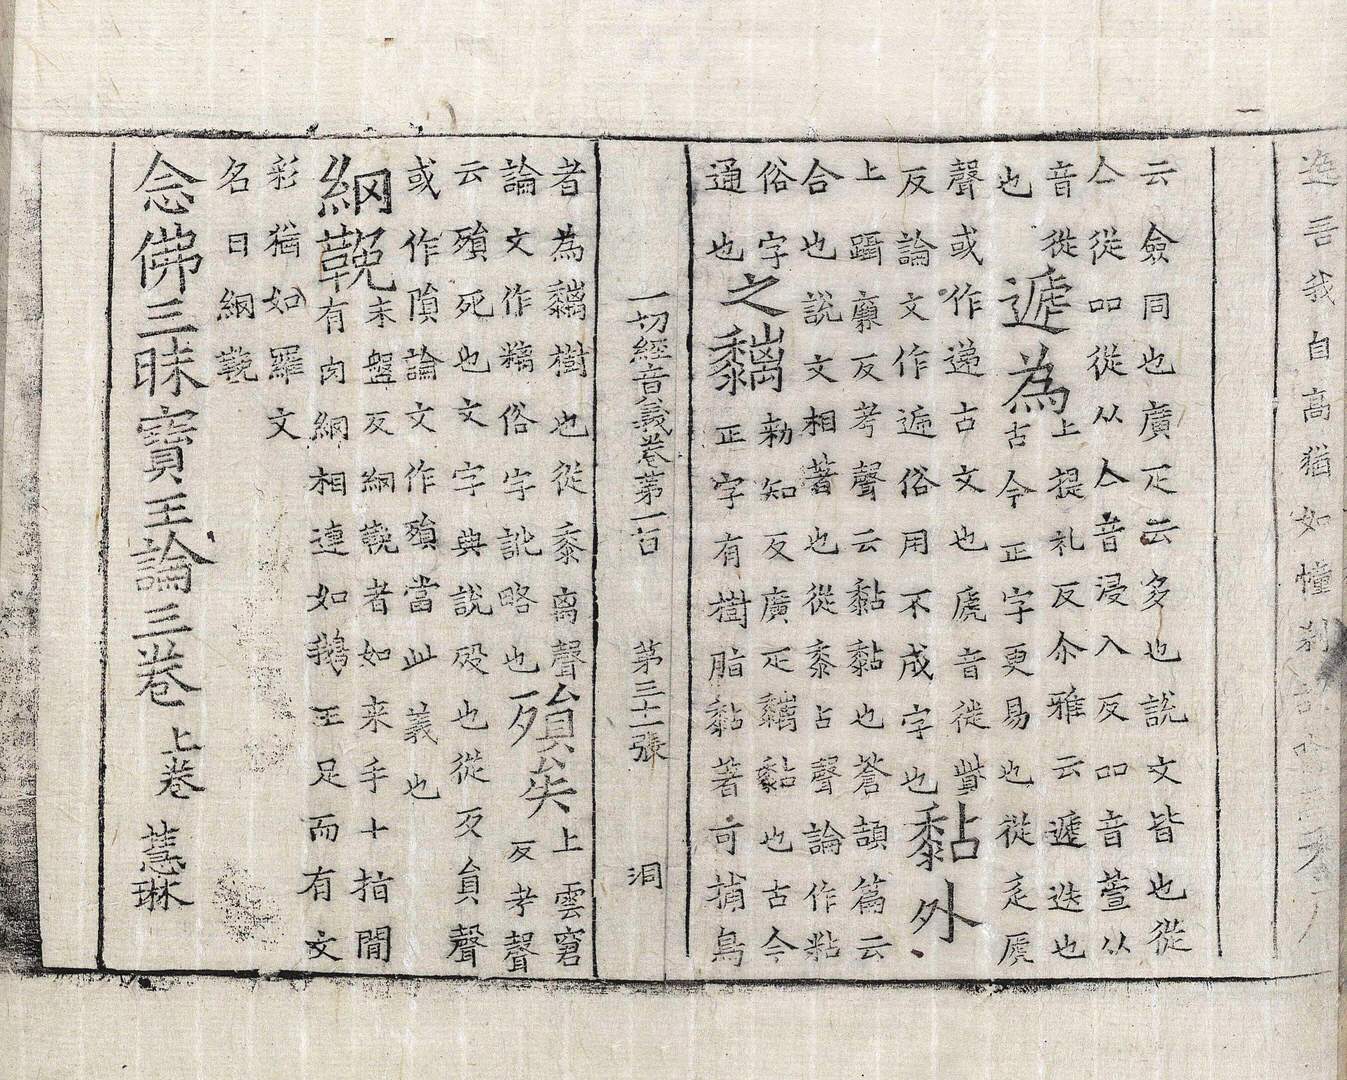 云僉同也廣疋云多也說文皆也從
亼從吅從从亼音浸入反吅音萱从
音從
也
遞為
上提礼反尒雅云遞迭也
古今正字更易也從辵虒
聲或作递古文也虒音徙觜
反論文作逓俗用不成字也
黏外
上躡廉反考聲云黏黏也蒼頡篇云
合也說文相著也從黍占聲論作粘
俗字
通也
之黐
勑知反廣疋黐黏也古今
正字有樹脂黏著可捕鳥
一切經音義卷第一百 第三十一張 洞
者為黐樹也從黍离聲
論文作䊜俗字訛略也
殞矣
上雲窘
反考聲
云殞死也文字與說歿也從歹員聲
或作隕論文作殞當此義也
網鞔
末盤反網鞔者如来手十指間
有肉網相連如鵝王足而有文
彩猶如羅文
名曰網鞔
念佛三昧寶王論三卷 上卷 慧琳